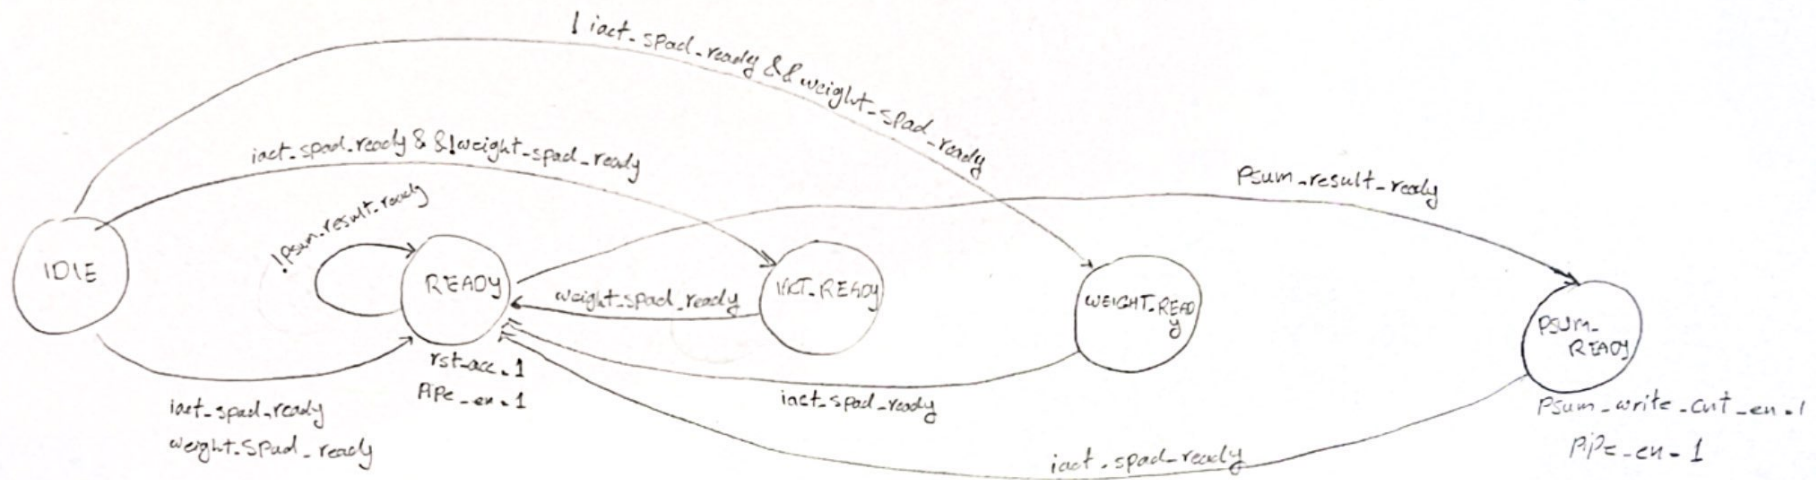 ! iact_spad_ready && weight_spad_ready
iact_spad_ready & &!weight_spad_ready
Psum_result_ready
!Psum_result_ready
IDIE
READY
weight_spad_ready
IACT_READY
WEIGHT_READ
y
PSUM_
READY
rst_acc_1
PiPe_en_1
iact_spad_ready
weight_Spad_ready
iact_spad_ready
iact_spad_ready
Psum_write_cnt_en_1
PiPe_en_1